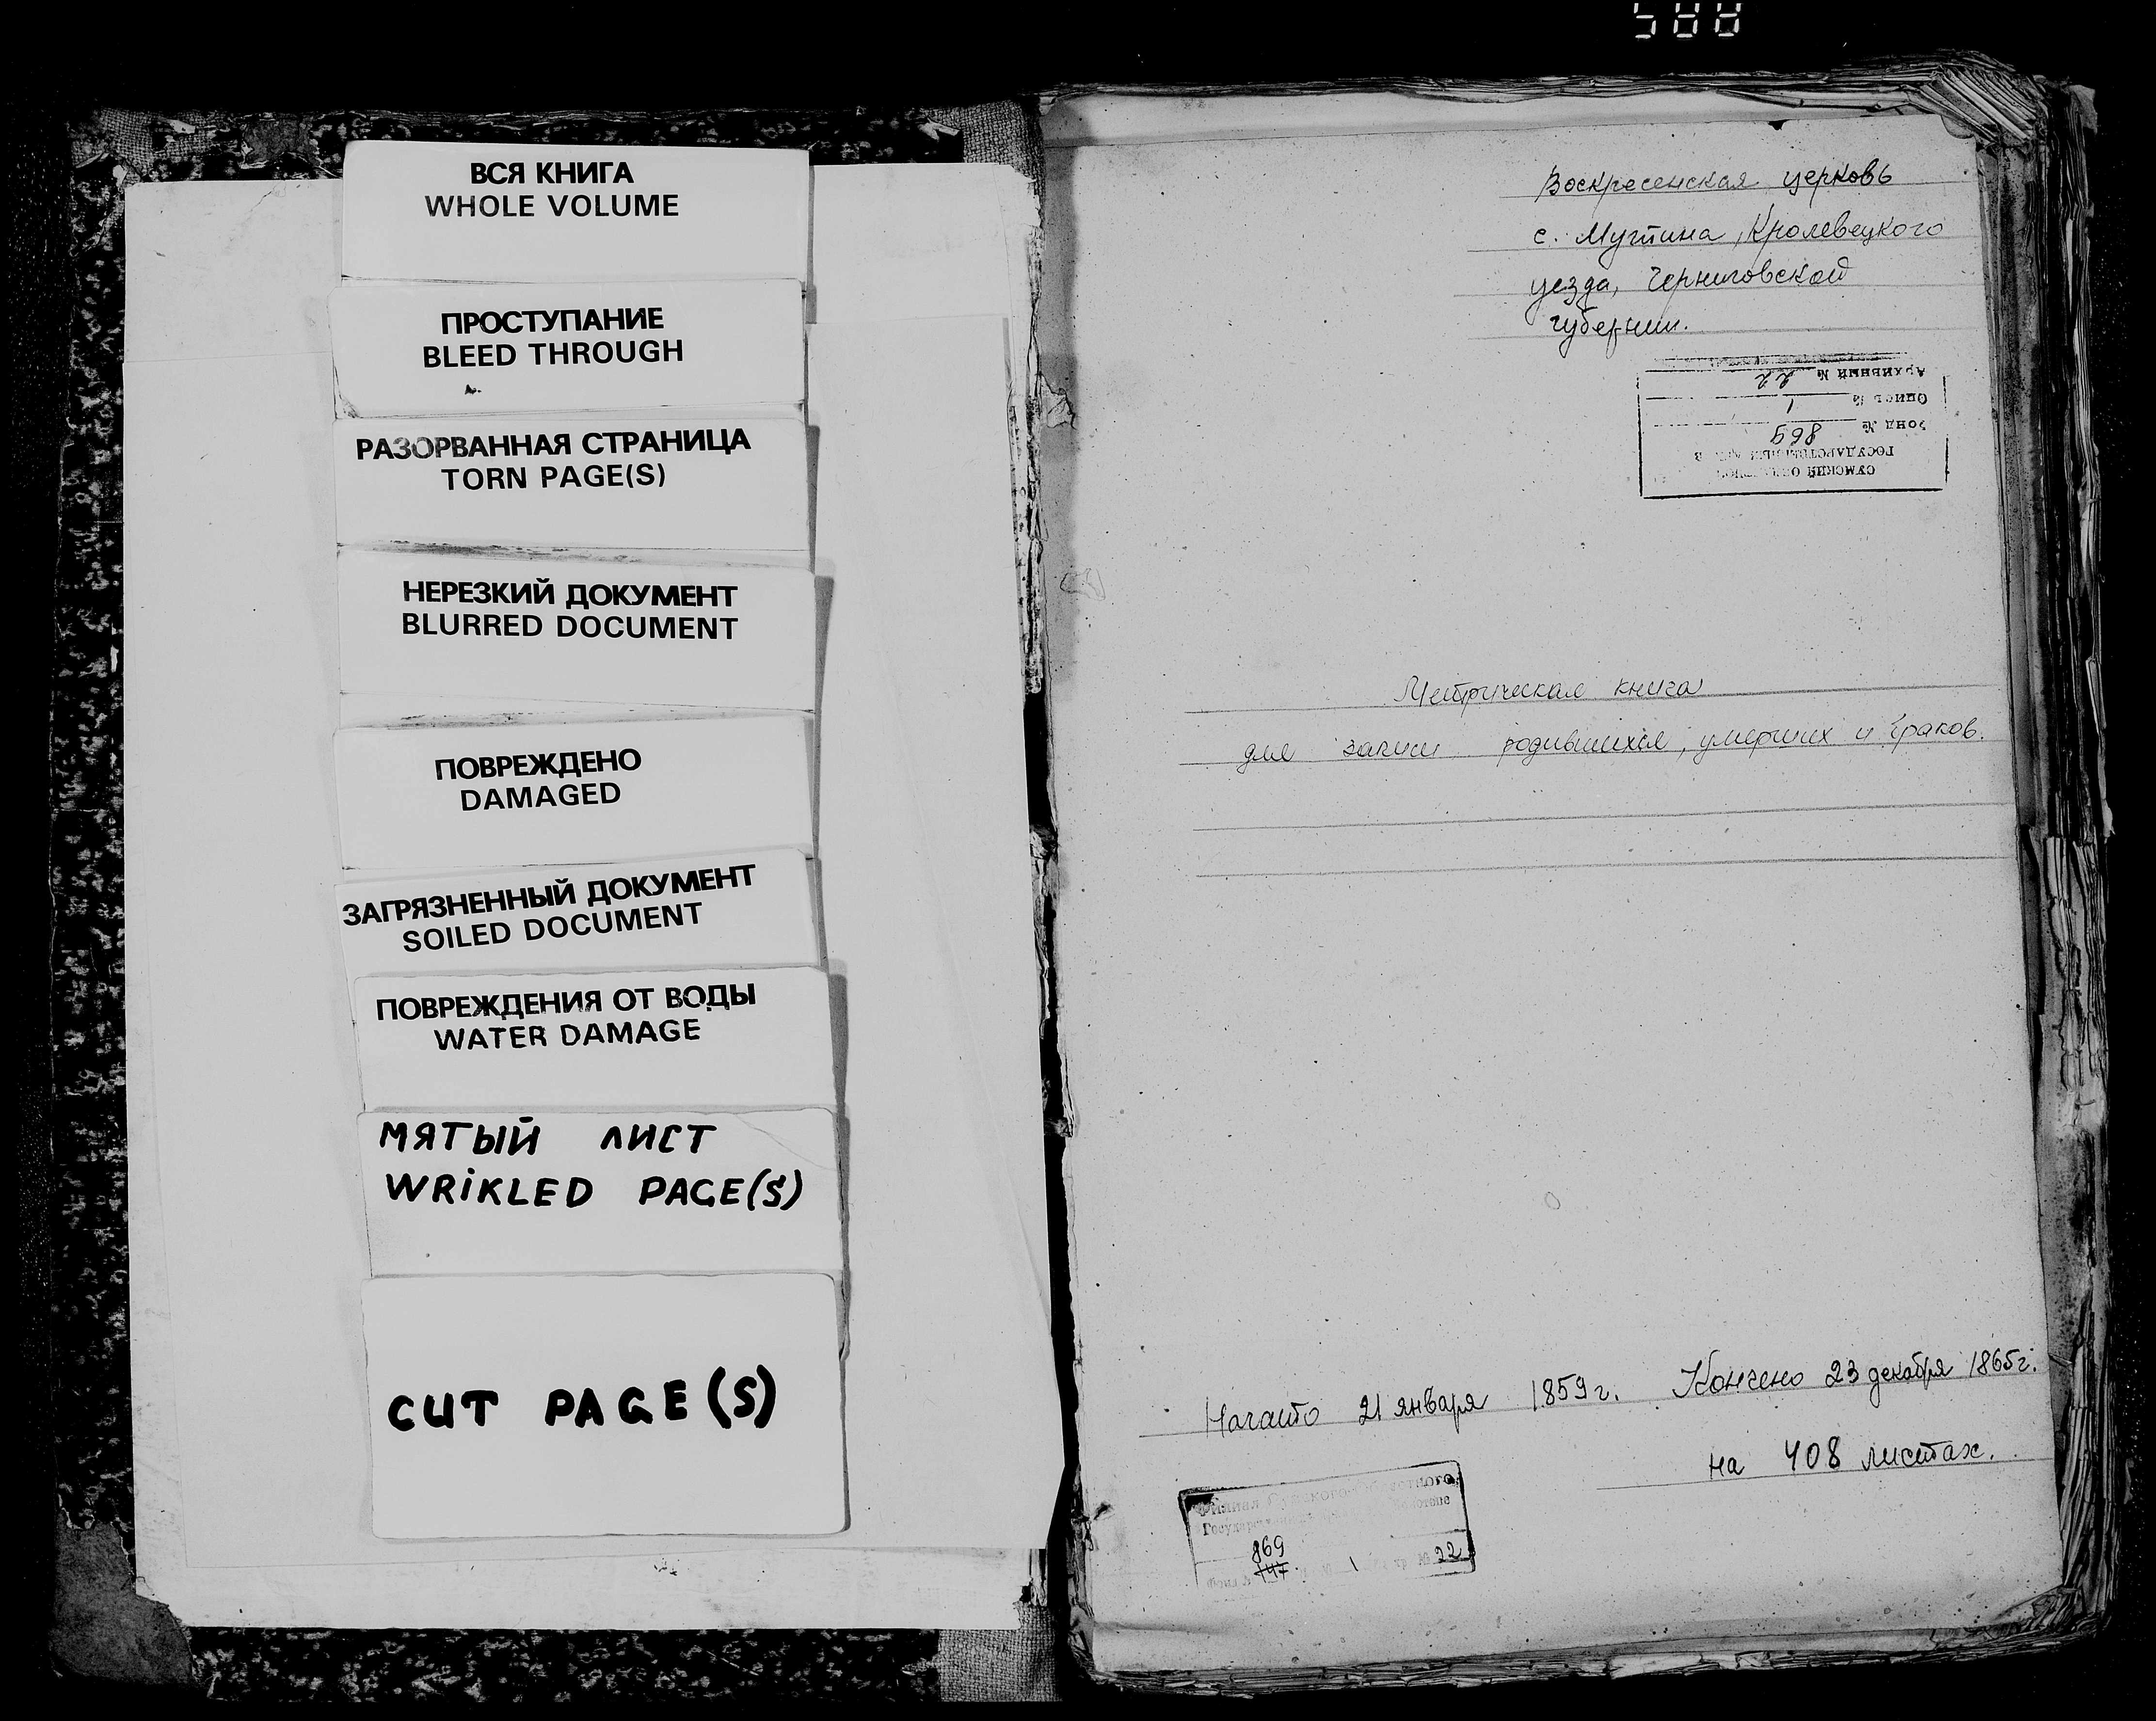 ВСЯ КНИГА
WHOLE VOLUME
ПРОСТУПАНИЕ
BLEED THROUGH
РАЗОРВАННАЯ СТРАНИЦА
TORN PAGE(S)
НЕРЕЗКИЙ ДОКУМЕНТ
BLURRED DOCUMENT
ПОВРЕЖДЕНО
DAMAGED
ЗАГРЯЗНЕННЫЙ ДОКУМЕНТ
SOILED DOCUMENT
ПОВРЕЖДЕНИЯ ОТ ВОДЫ
WATER DAMAGE
МЯТЫЙ ЛИСТ
WRiKLED PAGE(S)
CUT PAGE(S)
Воскресенская церковь
с. Мутина, Кролевецкого
уезда, Черниговской
губернии.
СУМСКИЙ
ГОСУДАРСТВЕННЫЙ
Фонд № 869
Опись № 1
Архивный № 22
Метрическая книга
для записи родившихся, умерших и браков.
Начато 21 января 1859 г. Кончено 23 декабря 1865 г.
на 408 листах.
Филиал Сумского Областного
869
1 22